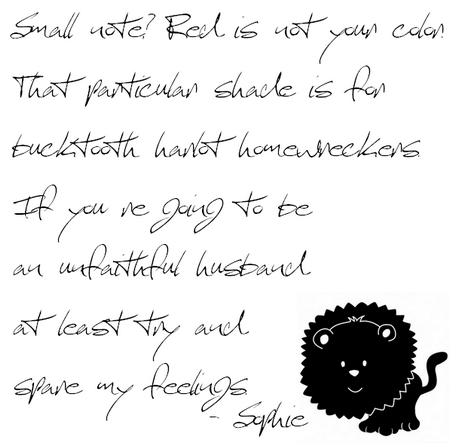 Small note? Red is not your color.
That particular shade is for
bucktooth harlot homewreckers.
If you're going to be
an unfaithful husband
at least try and
spare my feelings.
- Sophie